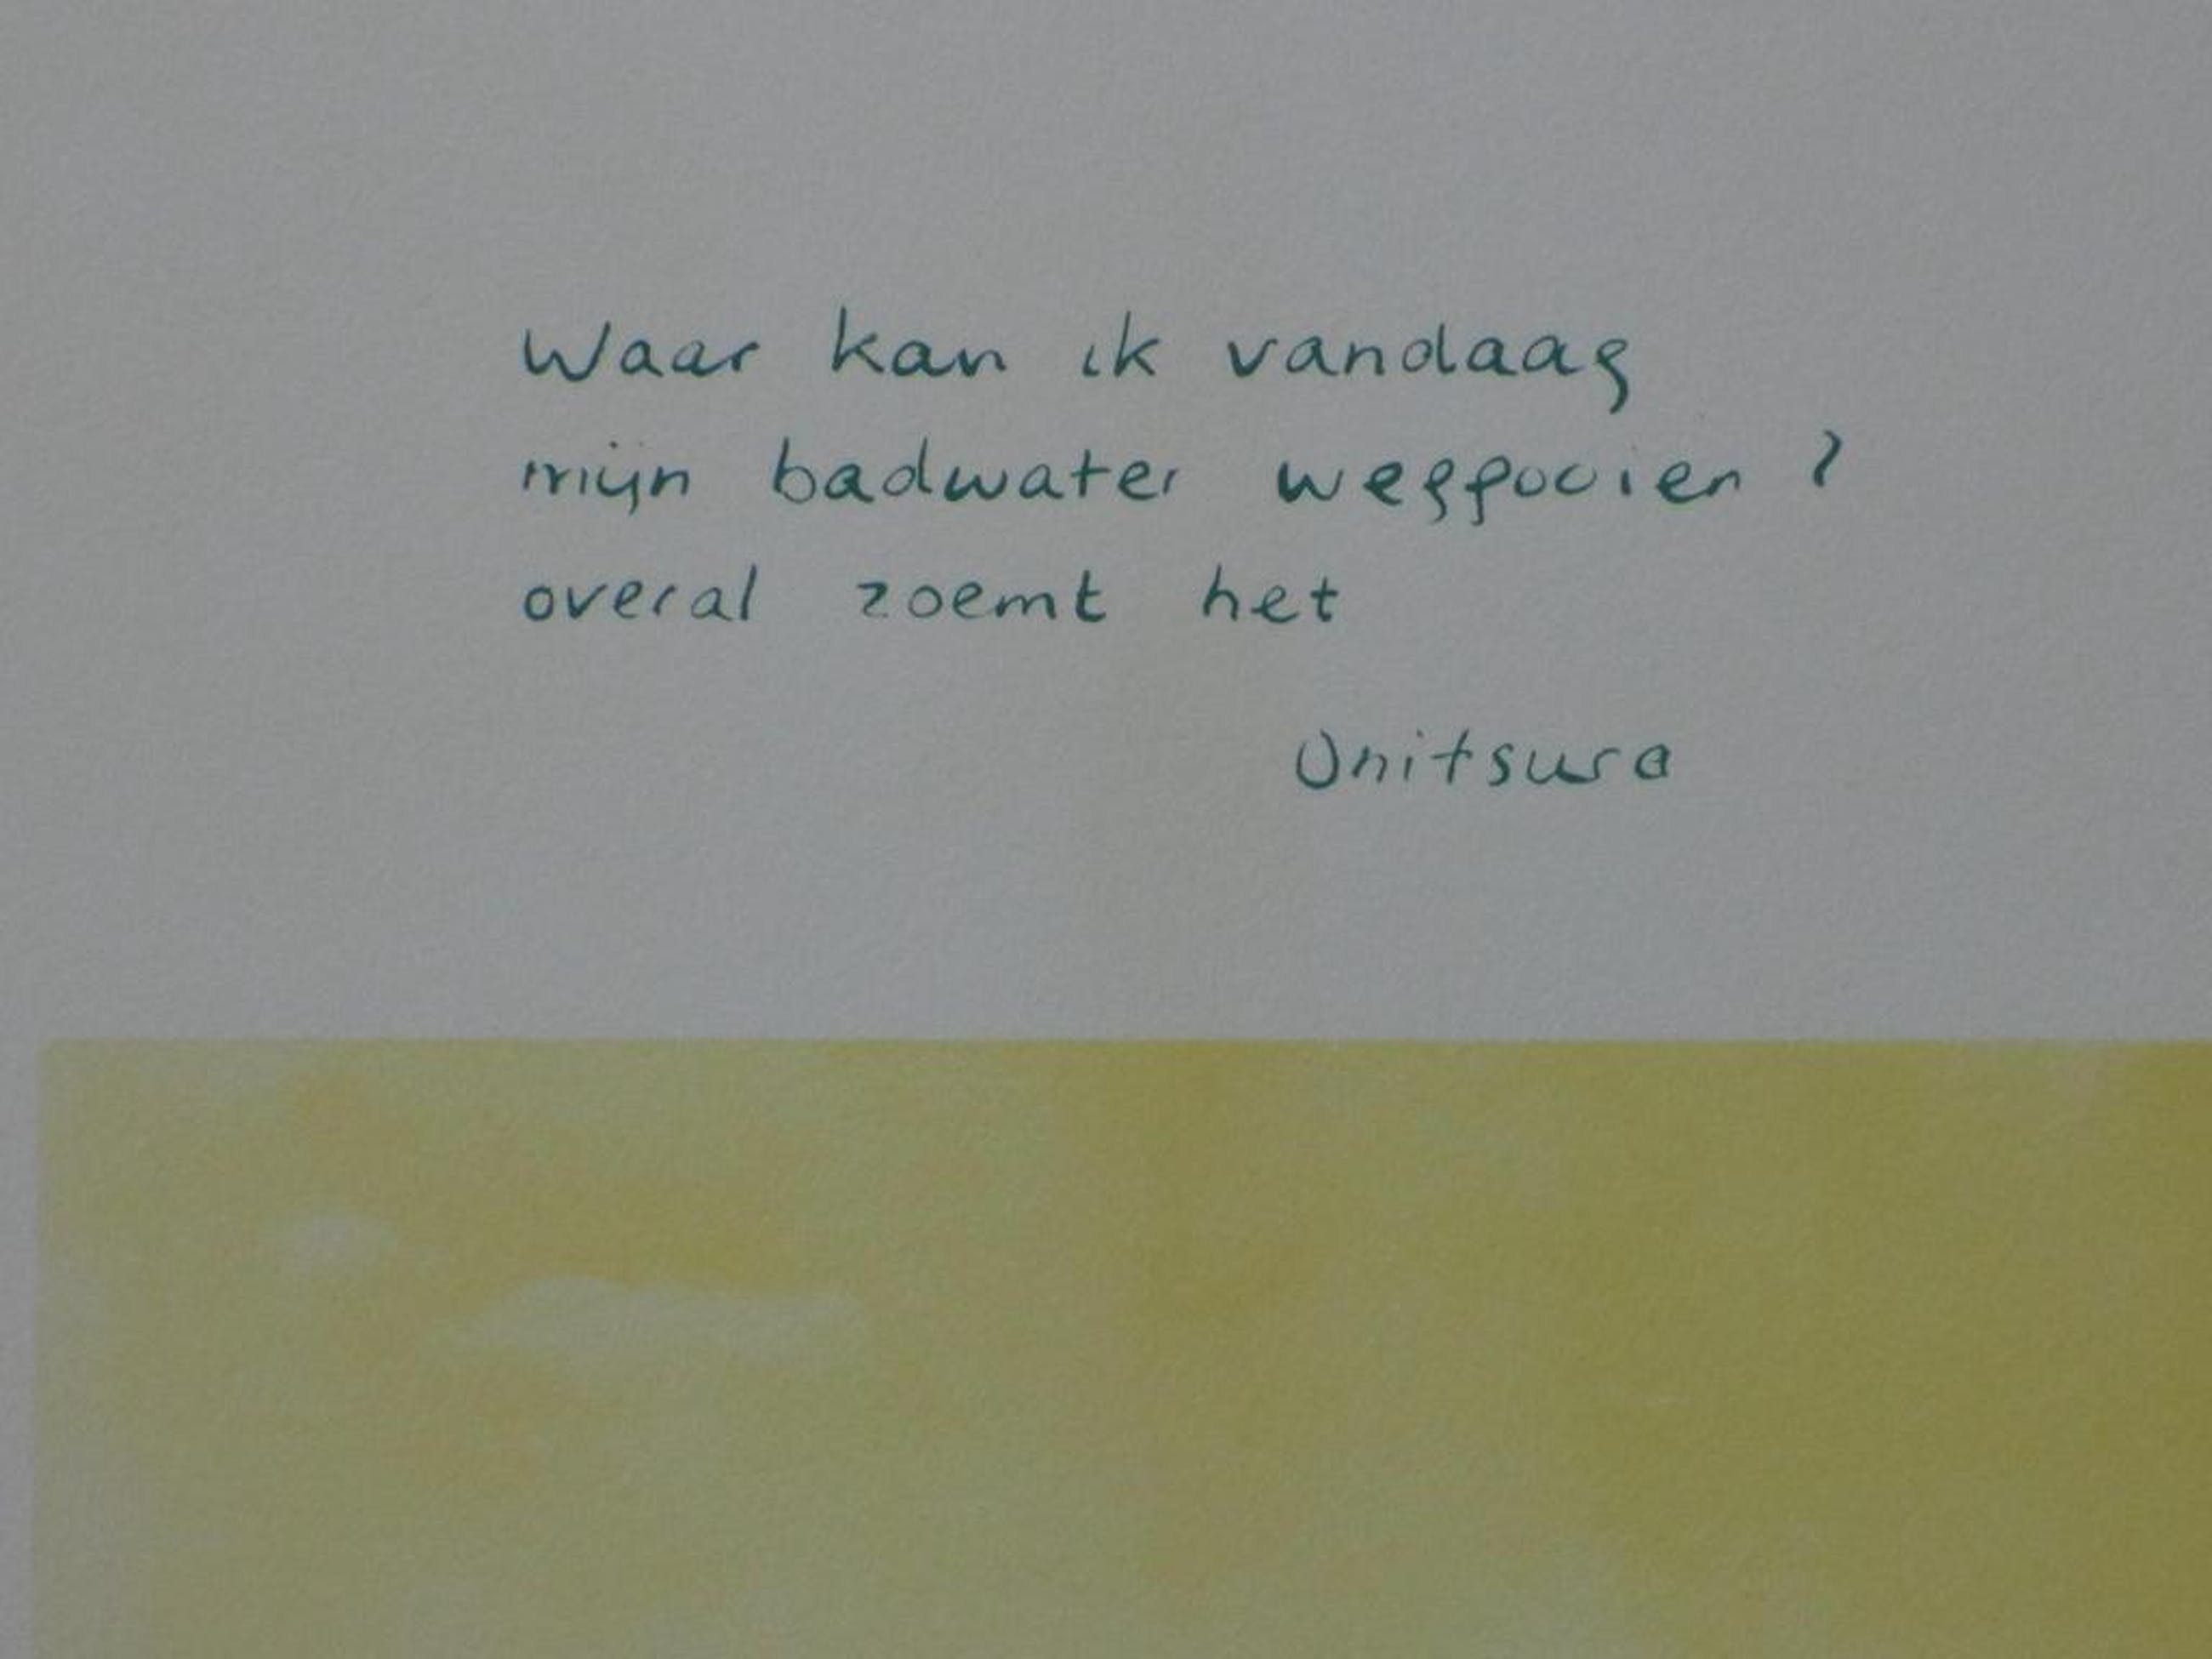 Waar kan ik vandaag
mijn badwater weggooien ?
overal zoemt het
Onitsura